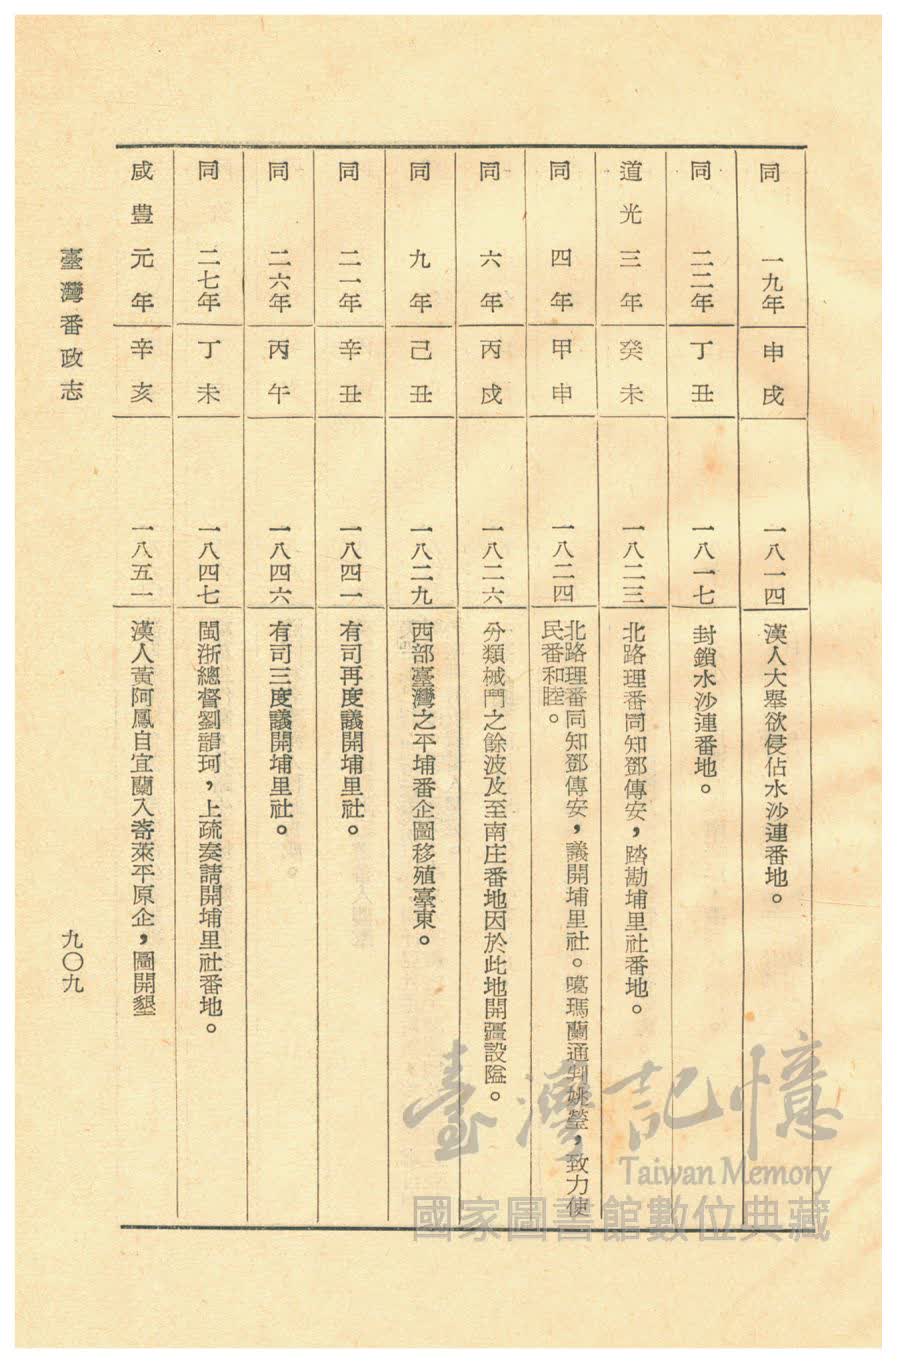 同　一九年　申戌　一八一四　漢人大舉欲侵佔水沙連番地。
同　二二年　丁丑　一八一七　封鎖水沙連番地。
道光三年　癸未　一八二三　北路理番同知鄧傳安，踏勘埔里社番地。
同　四年　甲申　一八二四　北路理番同知鄧傳安，議開埔里社。噶瑪蘭通判姚瑩，致力使
民番和睦。
同　六年　丙戌　一八二六　分類械鬥之餘波及至南庄番地因於此地開疆設隘。
同　九年　己丑　一八二九　西部臺灣之平埔番企圖移殖臺東。
同　二一年　辛丑　一八四一　有司再度議開埔里社。
同　二六年　丙午　一八四六　有司三度議開埔里社。
同　二七年　丁未　一八四七　閩浙總督劉韻珂，上疏奏請開埔里社番地。
咸豊元年　辛亥　一八五一　漢人黃阿鳳自宜蘭入奇萊平原企，圖開墾
臺灣番政志
九〇九
臺灣記憶
Taiwan Memory
國家圖書館數位典藏